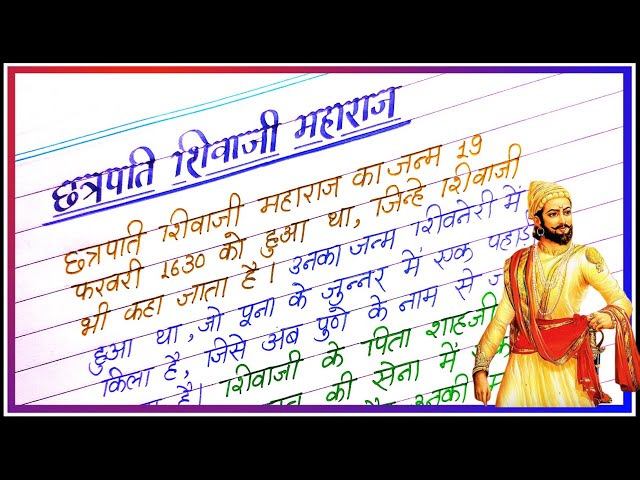 छत्रपति शिवाजी महाराज
छत्रपति शिवाजी महाराज का जन्म 19
फरवरी 1630 को हुआ था, जिन्हे शिवाजी
भी कहा जाता है। उनका जन्म शिवनेरी में
हुआ था, जो पूना के जुन्नर में एक
किला है, जिसे अब पुणे के नाम से
है। शिवाजी के पिता शाहजी
की सेना में
उनकी